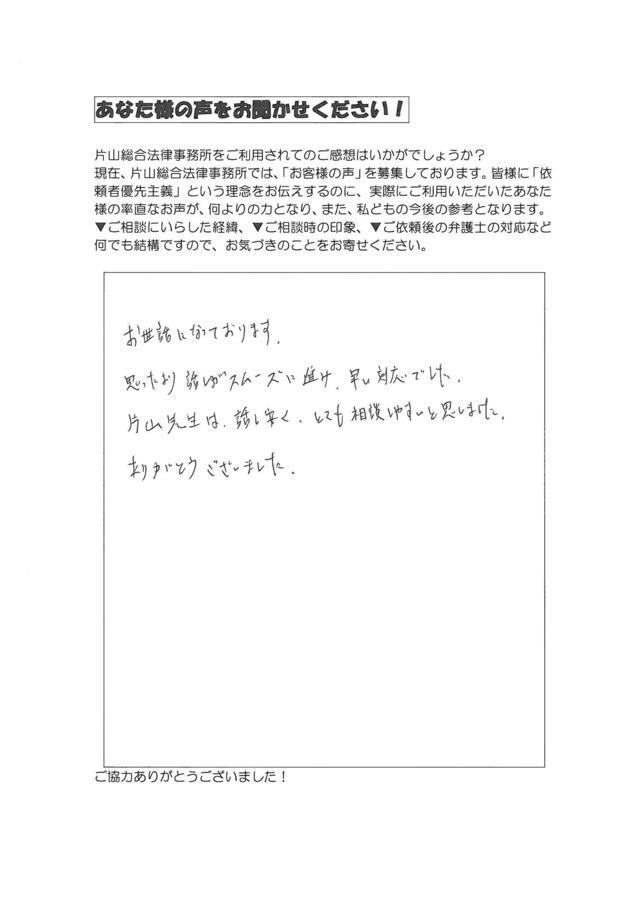 あなた様の声をお聞かせください！
片山総合法律事務所をご利用されてのご感想はいかがでしょうか？
現在、片山総合法律事務所では、「お客様の声」を募集しております。皆様に「依
頼者優先主義」という理念をお伝えするのに、実際にご利用いただいたあなた
様の率直なお声が、何よりの力となり、また、私どもの今後の参考となります。
▼ご相談にいらした経緯、▼ご相談時の印象、▼ご依頼後の弁護士の対応など
何でも結構ですので、お気づきのことをお寄せください。
お世話になっております。
思ったより話しがスムーズに進み、早い対応でした。
片山先生は、話し安く、とても相談しやすいと思しました。
ありがとうございました。
ご協力ありがとうございました！